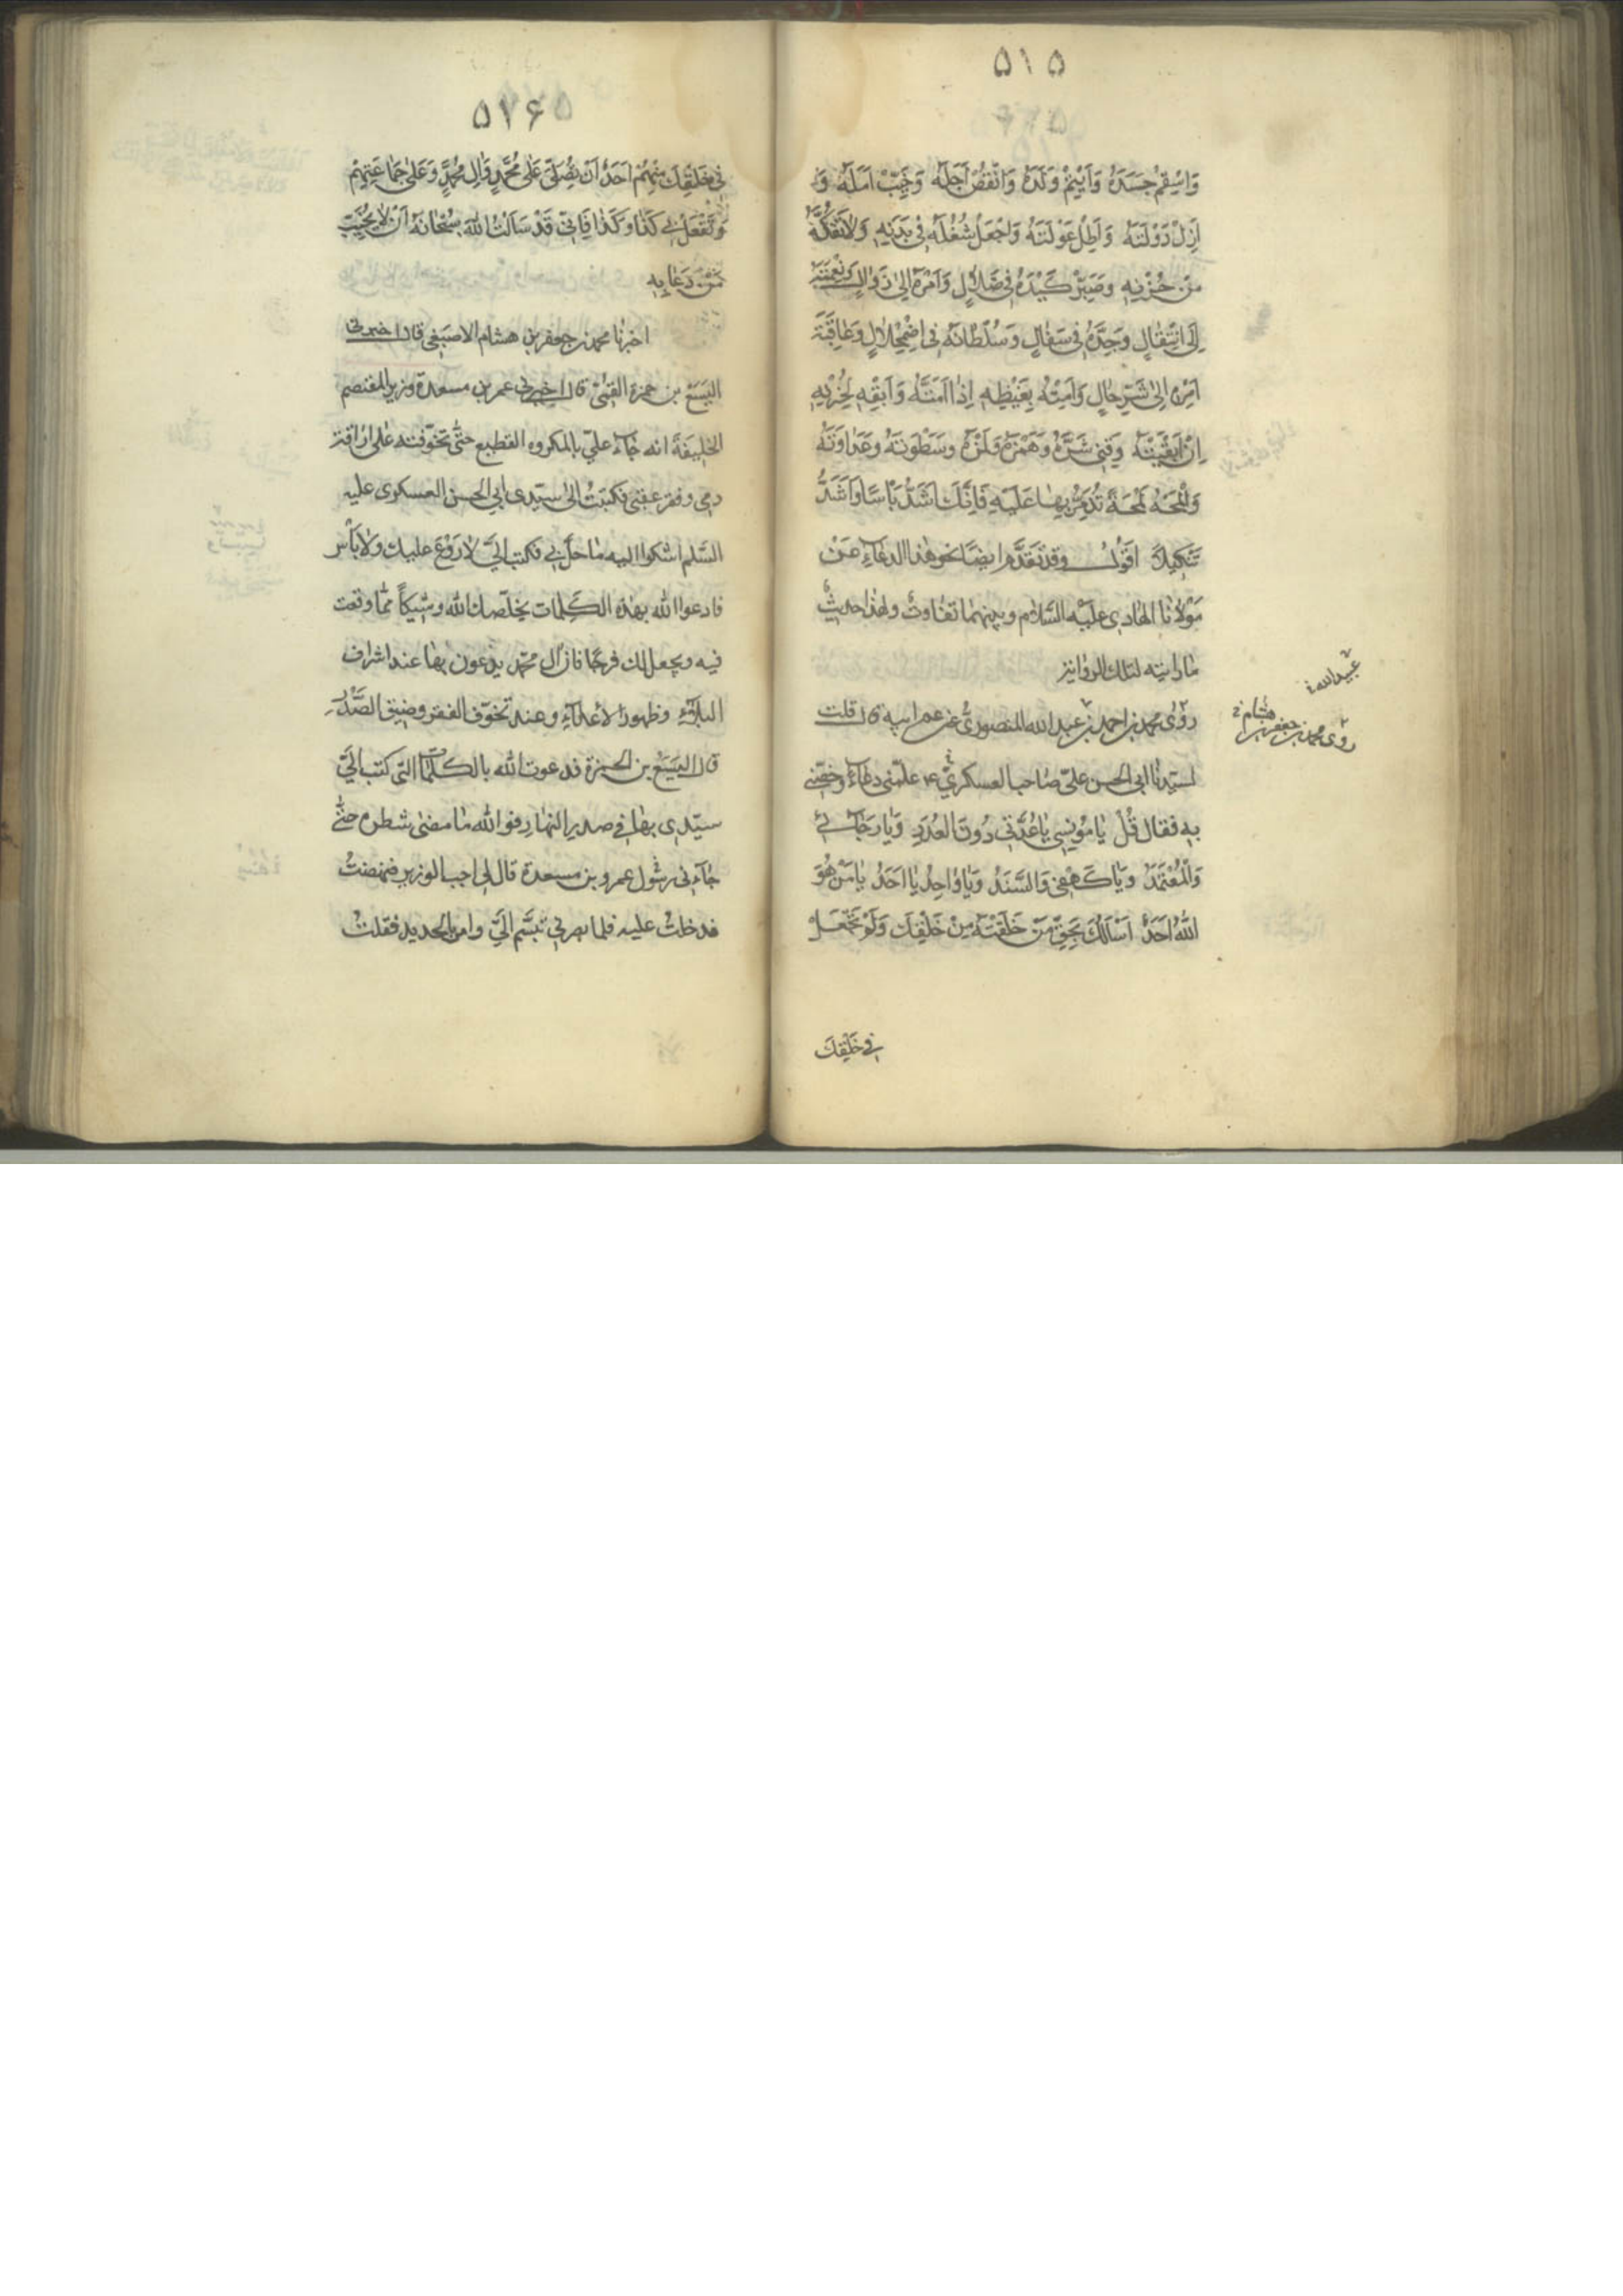 ۵۱۵
وَاَسْقِمْ جَسَدَهُ وَاَيْتِمْ وَلَدَهُ وَانْقُصْ اَجَلَهُ وَخَيِّبْ اَمَلَهُ وَ
اَزِلْ دَوْلَتَهُ وَاَطِلْ عَوْلَتَهُ وَاجْعَلْ شُغْلَهُ فِى بَدَنِهِ وَلاتَفُكَّهُ
مِنْ حُزْنِهِ وَصَيِّرْ كَيْدَهُ فِى ضَلالٍ وَاَمْرَهُ اِلىٰ زَوالٍ وَنِعْمَتَهُ
اِلَى انْتِقٰالٍ وَجَدَّهُ فِى سَفٰالٍ وَسُلْطٰانَهُ فِى اضْمِحْلالٍ وَعٰاقِبَةَ
اَمْرِهِ اِلىٰ شَرِّ حٰالٍ وَاَمِتْهُ بِغَيْظِهِ اِذٰا اَمَتَّهُ وَاَبْقِهِ لِحُزْنِهِ
اِنْ اَبْقَيْتَهُ وَقِنِى شَرَّهُ وَهَمْزَهُ وَلَمْزَهُ وَسَطْوَتَهُ وَعَدٰاوَتَهُ
وَالْمَحْهُ لَمْحَةً تُدَمِّرُ بِهٰا عَلَيْهِ فَاِنَّكَ اَشَدُّ بَأْسًا وَاَشَدُّ
تَنْكِيلًا اقول وقد تقدّم ايضًا نحو هٰذا الدعآء عن
مولانا الهادى عليه السّلام وبينهما تفاوت ولهذا حديث
ما رايته لتلك الرواية
روى محمد بن احمد بن عبيد الله المنصورى عن عم ابيه قال قلت
لسيّدنا ابى الحسن علىّ صاحب العسكرى ع علّمنى دعآء وخصّنى
به فقال قُلْ يٰا مُونِسِى يٰا عُدَّتِى دُونَ الْعُدَدِ وَيٰا رَجٰائِى
وَالْمُعْتَمَدُ وَيٰا كَهْفِى وَالسَّنَدُ وَيٰا وٰاحِدُ يٰا اَحَدُ يٰا مَنْ هُوَ
اللّٰهُ اَحَدٌ اَسْأَلُكَ بِحَقِّ مَنْ خَلَقْتَهُ مِنْ خَلْقِكَ وَلَمْ تَجْعَلْ
فِى خَلْقِكَ
عبيد الله
روى محمد بن جعفر بن هشام
۵۱۶
فِى خَلْقِكَ مِثْلَهُمْ اَحَدًا اَنْ تُصَلِّىَ عَلٰى مُحَمَّدٍ وَآلِ مُحَمَّدٍ وَعَلىٰ جَمٰاعَتِهِمْ
وَتَفْعَلَ بِى كَذٰا وَكَذٰا فَاِنِّى قَدْ سَاَلْتُ اللّٰهَ سُبْحٰانَهُ اَنْ لا يُخَيِّبَ
مَنْ دَعٰا بِهِ
اخبرنا محمد بن جعفر بن هشام الاصبغى قال اخبرنى
اليَسَع بن حمزة القمّى قال اخبرنى عمر بن مسعدة وزير المعتصم
الخليفة انه جآء علىّ بالمكروه الفظيع حتّى تخوّفته على اراقة
دمى وفقر عقبى فكتبت الى سيّدى ابى الحسن العسكرى عليه
السّلم اشكوا اليه ما حلّ بى فكتب الىّ لا رَوْع عليك ولا بأس
فادعوا الله بهذه الكلمات يخلّصك الله وشيكًا ممّا وقعت
فيه ويجعل لك فرجًا فان آل محمّد يدعون بها عند اشراف
البلآء وظهور الاعدآء وعند تخوّف الفقر وضيق الصّدر
قال اليسع بن الحمزة فدعوت الله بالكلمات التى كتب الىّ
سيّدى بها فى صدر النهار فوالله ما مضى شطره حتّى
جآءنى رسول عمرو بن مسعدة قال لى اجب الوزير فنهضتُ
فدخلت عليه فلما بصر بى تبسّم الىّ وامر بالحديد فقلت